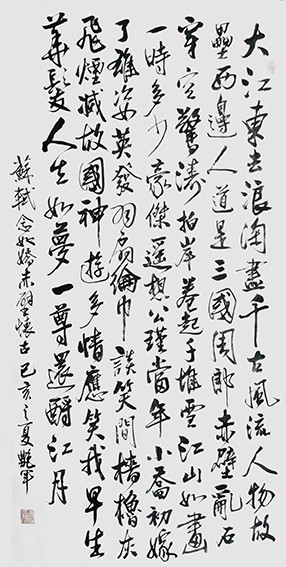 大江東去浪淘盡千古風流人物故
壘西邊人道是三國周郎赤壁亂石
穿空驚濤拍岸卷起千堆雪江山如畫
一時多少豪傑遥想公瑾當年小喬初嫁
了雄姿英發羽扇綸巾談笑間檣櫓灰
飛煙滅故國神遊多情應笑我早生
華髮人生如夢一尊還酹江月
蘇軾念奴嬌赤壁懷古己亥之夏艷軍